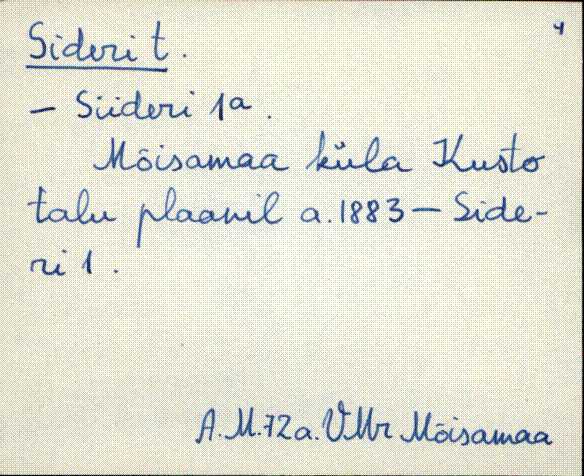 4
Sideri t.
- Siideri 1a.
Mõisamaa küla Kusto
talu plaanil a. 1883 - Side-
ri 1.
A.M. 72a. VMr Mõisamaa